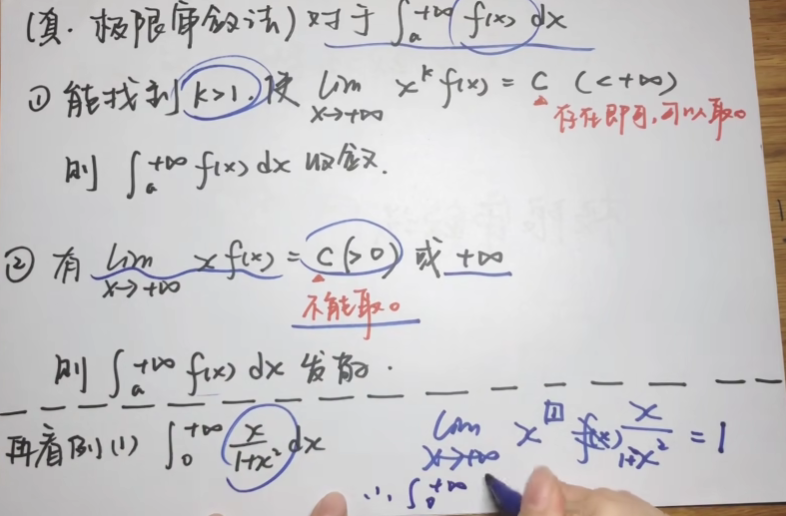 (真·极限审敛法)对于 ∫ₐ^{+∞} f(x) dx
① 能找到 k>1, 使 lim_{x→+∞} x^k f(x) = C (<+∞)
存在即可,可以取0
则 ∫ₐ^{+∞} f(x) dx 收敛.
② 有 lim_{x→+∞} x f(x) = C(>0) 或 +∞
不能取0
则 ∫ₐ^{+∞} f(x) dx 发散.
再看例(1) ∫₀^{+∞} x/(1+x²) dx lim_{x→+∞} x^1 f(x) x/(1+x²) = 1
∴ ∫₀^{+∞}